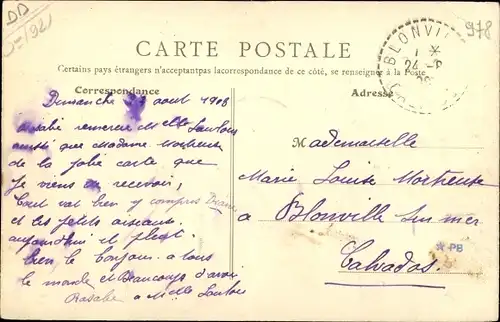 978
BLONVIL
24 - 8
CARTE POSTALE
Certains pays étrangers n'acceptant pas la correspondance de ce côté, se renseigner à la Poste
Correspondance
Adresse
Dimanche août 1908
remercie Melle
aussi que Madame Mortreuse
de la jolie carte que
je viens de recevoir,
tout va bien y compris
et les petits oiseaux.
aujourd'hui il pleut.
bien le bonjour a tous
le monde et Beaucoup
a Melle
Mademoiselle
Marie Louise Mortreuse
a Blonville sur mer
Calvados.
* PB